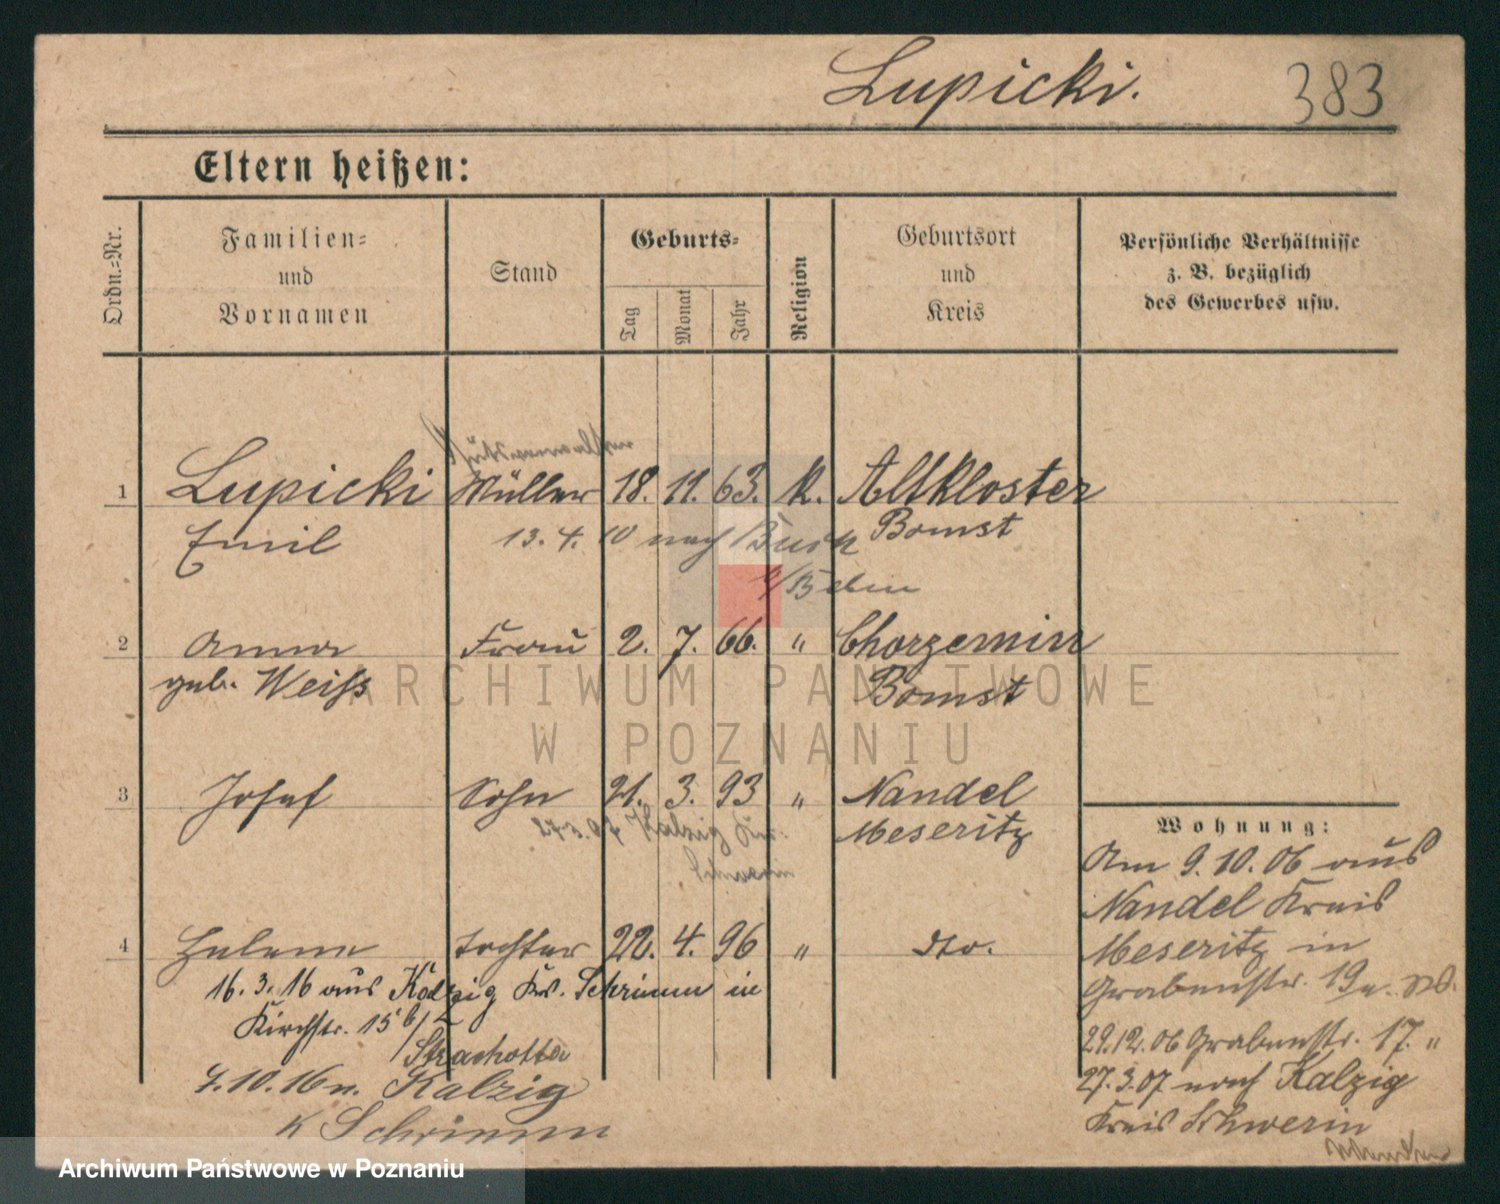 Lupicki. 383
Eltern heißen:
Ordn.-Nr.
Familien-
und
Vornamen
Stand
Geburts-
Tag
Monat
Jahr
Religion
Geburtsort
und
Kreis
Persönliche Verhältnisse
z. B. bezüglich
des Gewerbes usw.
1 Lupicki Müller 18. 11. 63. K. Altkloster
Emil Bomst
13. 4. 10 nach
2 Anna Frau 2. 7. 66. " Chorzemin
geb. Weiß Bomst
3 Josef Sohn 21. 3. 93 " Nandel
Meseritz
27.3.07 Kalzig
Schwerin
4 Helene Tochter 22. 4. 96 " dto.
16. 3. 16 aus Kr. Schrimm in
Kirchstr. 15 b/
Strachotta
4. 10. 16 n. Kalzig
K Schrimm
Wohnung:
Am 9. 10. 06 aus
Nandel Kreis
Meseritz in
Grabenstr. 19a.
29.12.06 Grabenstr. 17. "
27. 3. 07 nach Kalzig
Kreis Schwerin
ARCHIWUM PAŃSTWOWE
W POZNANIU
Archiwum Państwowe w Poznaniu